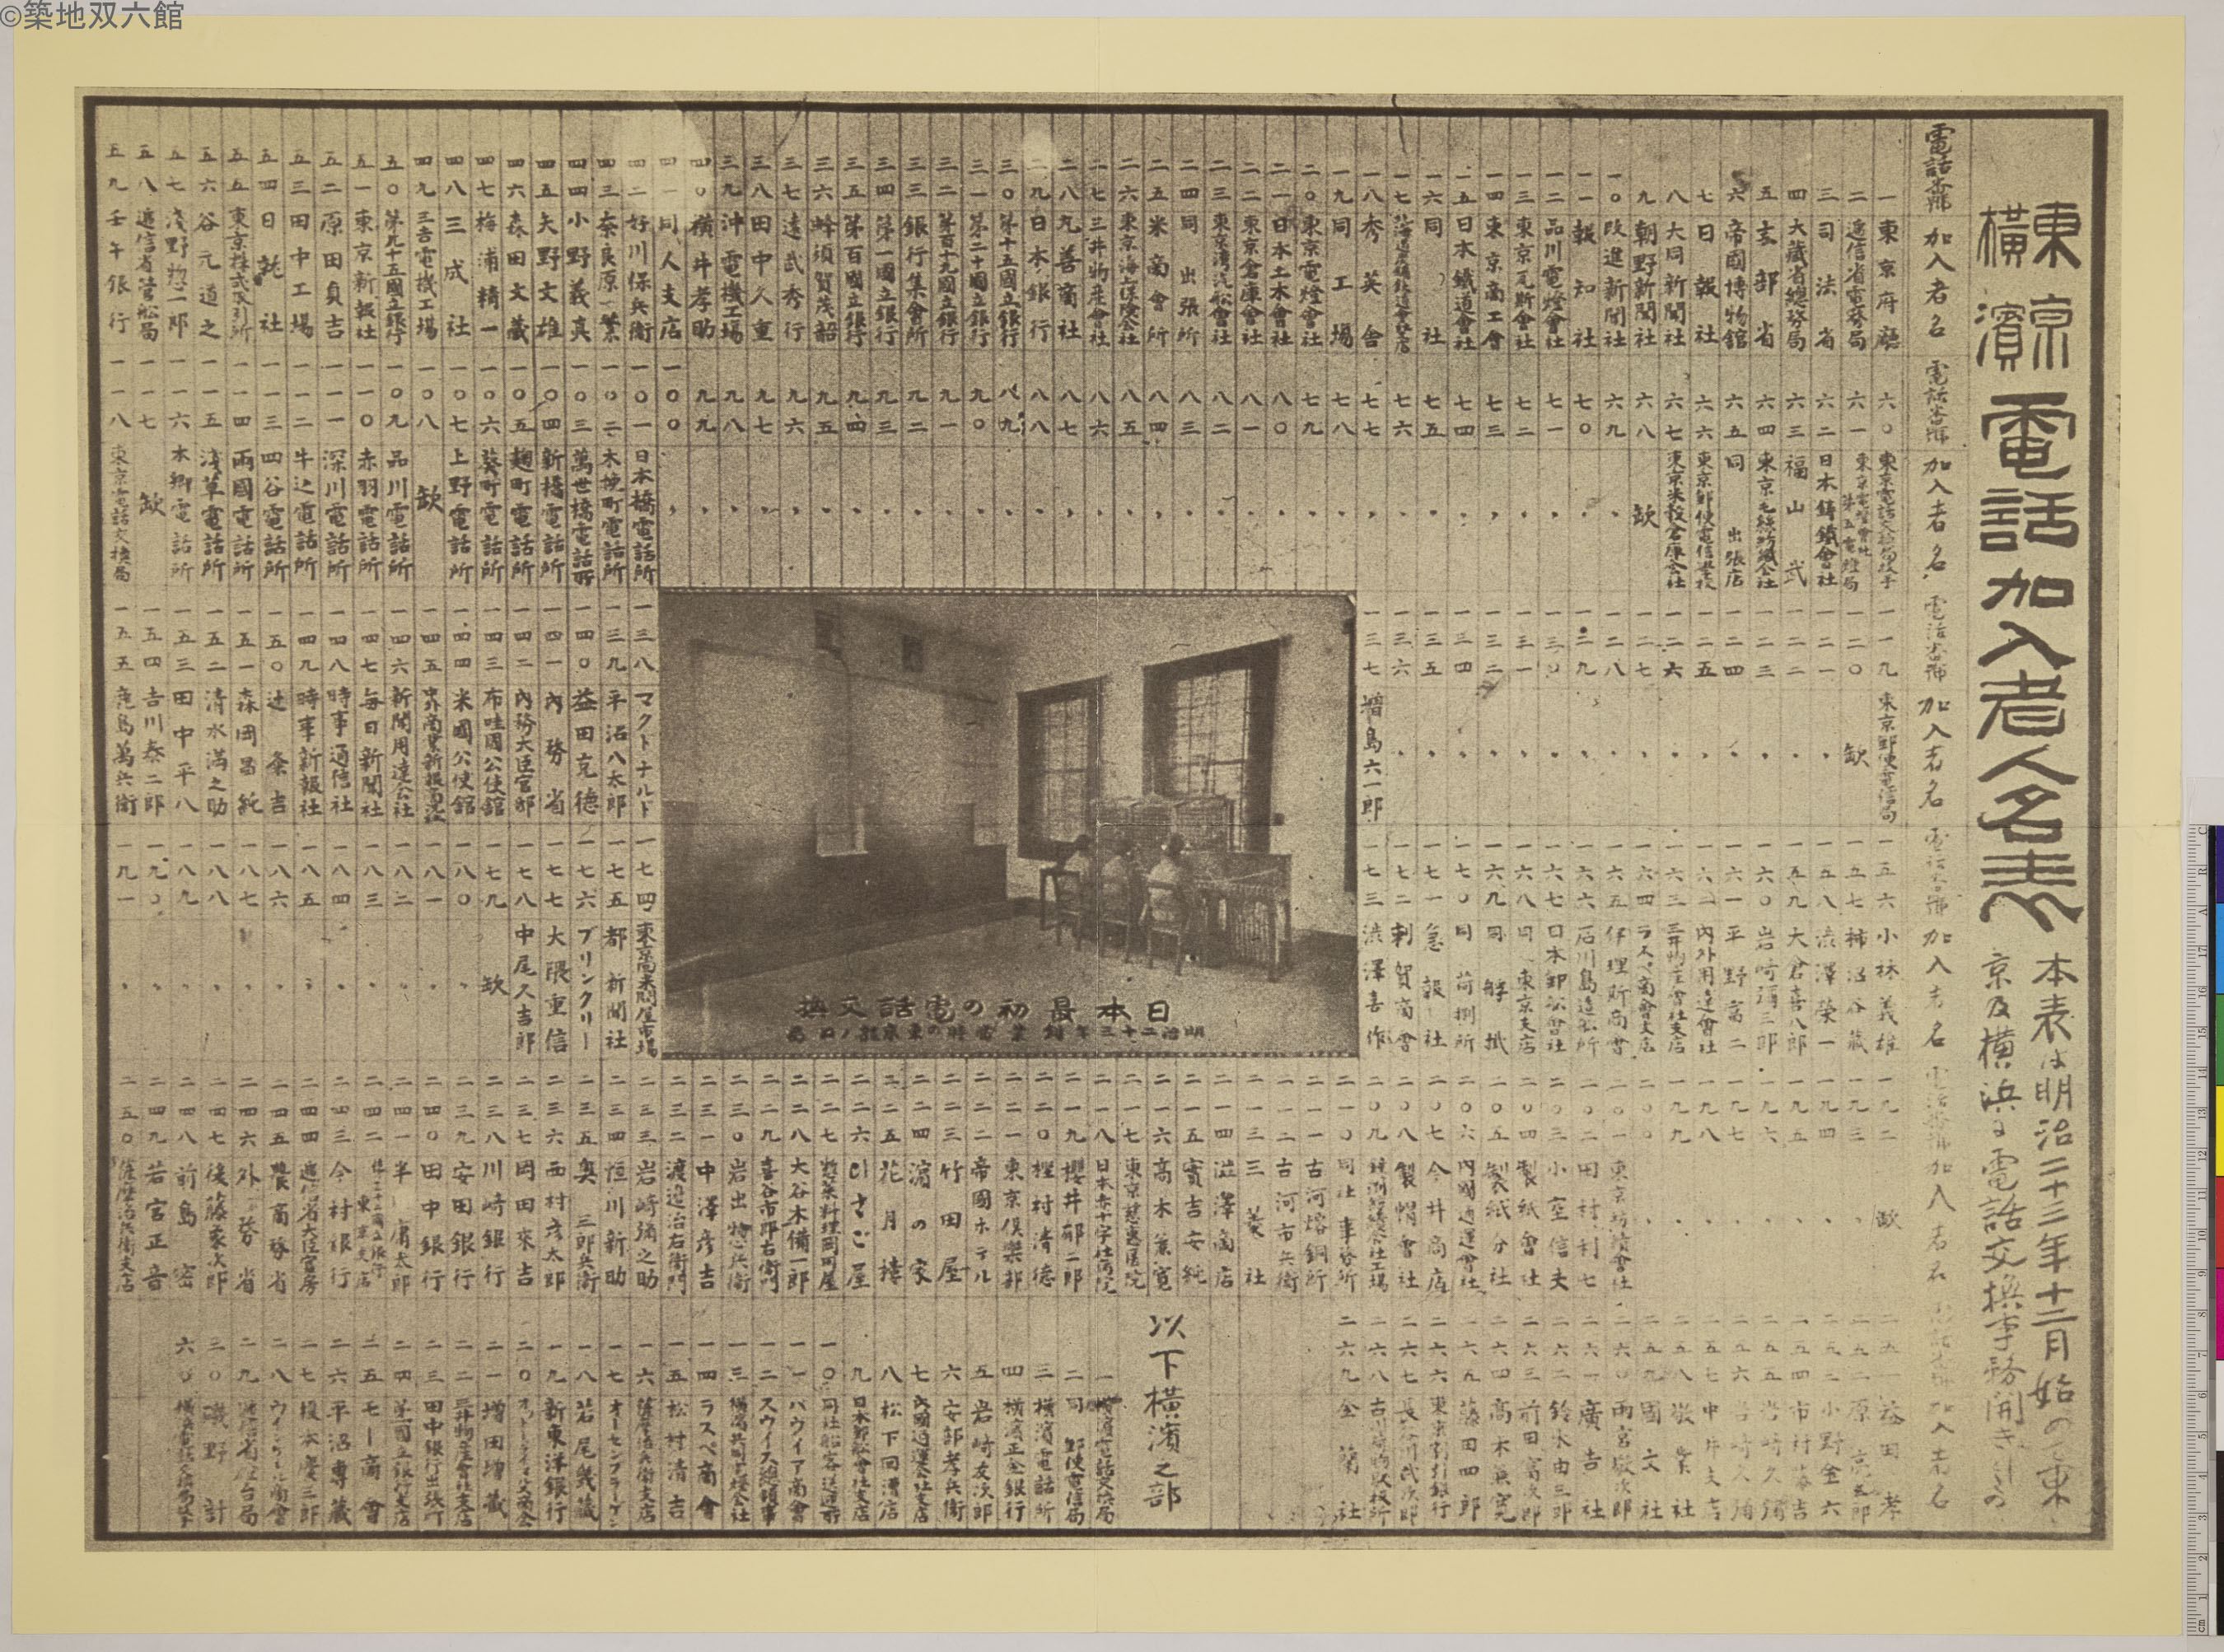 ©築地双六館
東京
横濱
電話加入者人名表
本表は明治二十三年十二月始めて東
京及横浜に電話交換事務開きしもの
電話番號 加入者名 電話番號 加入者名 電話番號 加入者名 電話番號 加入者名 電話番號 加入者名 電話番號 加入者名
一 東京府廳
二 遞信省電務局
三 司法省
四 大藏省總務局
五 文部省
六 帝國博物館
七 日報社
八 大同新聞社
九 朝野新聞社
一〇 改進新聞社
一一 報知社
一二 品川電燈會社
一三 東京瓦斯會社
一四 東京商工會
一五 日本鐵道會社
一六 同社
一七 北海道炭礦鉄道會社支店
一八 秀英舎
一九 同工場
二〇 東京電燈會社
二一 日本土木會社
二二 東京倉庫會社
二三 東京湾汽船會社
二四 同出張所
二五 米商會所
二六 東京海上保険会社
二七 三井物産會社
二八 丸善商社
二九 日本銀行
三〇 第十五國立銀行
三一 第二十國立銀行
三二 第百十九國立銀行
三三 銀行集會所
三四 第一國立銀行
三五 第百國立銀行
三六 蜂須賀茂韶
三七 遠武秀行
三八 田中久重
三九 沖電機工場
四〇 横井孝助
四一 同人支店
四二 好川保兵衛
四三 奈良原繁
四四 小野義真
四五 矢野文雄
四六 森田文藏
四七 梅浦精一
四八 三成社
四九 三吉電機工場
五〇 第九十五國立銀行
五一 東京新報社
五二 原田貞吉
五三 田中工場
五四 日就社
五五 東京株式取引所
五六 谷元道之
五七 浅野惣一郎
五八 遞信省管船局
五九 壬午銀行
六〇 東京電話交換局技手
六一 東京電燈會社第五電燈局
六二 日本鋳鐵會社
六三 福山武
六四 東京毛絲紡織会社
六五 同出張店
六六 東京郵便電信學校
六七 東京米穀倉庫会社
六八 欠
六九 〃
七〇 〃
七一 〃
七二 〃
七三 〃
七四 〃
七五 〃
七六 〃
七七 〃
七八 〃
七九 〃
八〇 〃
八一 〃
八二 〃
八三 〃
八四 〃
八五 〃
八六 〃
八七 〃
八八 〃
八九 〃
九〇 〃
九一 〃
九二 〃
九三 〃
九四 〃
九五 〃
九六 〃
九七 〃
九八 〃
九九 〃
一〇〇 〃
一〇一 日本橋電話所
一〇二 木挽町電話所
一〇三 萬世橋電話所
一〇四 新橋電話所
一〇五 麹町電話所
一〇六 葵町電話所
一〇七 上野電話所
一〇八 欠
一〇九 品川電話所
一一〇 赤羽電話所
一一一 深川電話所
一一二 牛込電話所
一一三 四谷電話所
一一四 両國電話所
一一五 浅草電話所
一一六 本郷電話所
一一七 欠
一一八 東京電話交換局
一一九 東京郵便電信局
一二〇 欠
一二一 〃
一二二 〃
一二三 〃
一二四 〃
一二五 〃
一二六 〃
一二七 〃
一二八 〃
一二九 〃
一三〇 〃
一三一 〃
一三二 〃
一三四 〃
一三五 〃
一三六 〃
一三七 増島六一郎
一三八 マクトナルド
一三九 平沼八太郎
一四〇 益田克徳
一四一 内務省
一四二 内務大臣官邸
一四三 布哇國公使館
一四四 米國公使館
一四五
一四六 新聞用達会社
一四七 毎日新聞社
一四八 時事通信社
一四九 時事新報社
一五〇 辻粂吉
一五一 森岡昌純
一五二 清水満之助
一五三 田中平八
一五四 吉川泰二郎
一五五 鹿島萬兵衛
一五六 小林義雄
一五七 柿沼谷蔵
一五八 渋澤榮一
一五九 大倉喜八郎
一六〇 岩崎彌之郎
一六一 平野富二
一六二 内外用達會社
一六三 三井物産會社支店
一六四 ラスペ商會支店
一六五 伊理貯商會
一六六 石川島造船所
一六七 日本郵船會社
一六八 同東京支店
一六九 同
一七〇 同荷捌所
一七一 急報社
一七二 刺賀商會
一七三 渋澤喜作
一七四 東京商業問屋市場
一七五 都新聞社
一七六 ブリンクリー
一七七 大隈重信
一七八 中尾久吉郎
一七九 欠
一八〇
一八一
一八二
一八三
一八四
一八五
一八六
一八七
一八八
一八九
一九〇
一九一
一九二 欠
一九三
一九四
一九五
一九六
一九七
一九八
一九九
二〇〇
二〇一 東京紡績會社
二〇二 田村利七
二〇三 小室信夫
二〇四 製紙會社
二〇五 製紙分社
二〇六 内國通運會社
二〇七 今井商店
二〇八 製帽會社
二〇九
二一〇 同社事務所
二一一 古河熔銅所
二一二 古河市兵衛
二一三 三菱社
二一四 澁澤商店
二一五 實吉安純
二一六 高木兼寛
二一七 東京慈恵医院
二一八 日本赤十字社病院
二一九 櫻井郁二郎
二二〇 樫村清徳
二二一 東京倶樂部
二二二 帝國ホテル
二二三 竹田屋
二二四 濱の家
二二五 花月樓
二二六 ひさご屋
二二七 惣菜料理岡田屋
二二八 大谷木備一郎
二二九 喜谷市郎右衛門
二三〇 岩出惣兵衛
二三一 中澤彦吉
二三二 渡邊治右衛門
二三三 岩崎彌之助
二三四 恒川新助
二三五 奥三郎兵衛
二三六 西村彦太郎
二三七 岡田來吉
二三八 川崎銀行
二三九 安田銀行
二四〇 田中銀行
二四一 半庸太郎
二四二 第三十二國立銀行東京支店
二四三 今村銀行
二四四 遞信省大臣官房
二四五 農商務省
二四六 外務省
二四七 後藤象次郎
二四八 前島密
二四九 若宮正音
二五〇 薩摩治兵衛支店
二五一 益田孝
二五二 原亮三郎
二五三 小野金六
二五四 市村藤吉
二五五 岩崎久彌
二五七 中井支店
二五八 敬業社
二五九 國文社
二六〇 雨宮敬次郎
二六一 廣吉社
二六二 鈴木由三郎
二六三 前田富次郎
二六四 高木兼寛
二六五 藤田四郎
二六六 東京割引銀行
二六七 長谷川武次郎
二六八
二六九 金蘭社
以下横濱之部
一 横濱電話交換局
二 同郵便電信局
三 横濱電話所
四 横濱正金銀行
五 岩崎友次郎
六 安部孝兵衛
七 内國通運会社支店
八 松下回漕店
九 日本郵船會社支店
一〇 同社船客
一一 バヴイア商會
一二 スウイス總領事
一三 横濱共同電燈会社
一四 ラスペ商會
一五 松村清吉
一六 薩摩治兵衛支店
一七
一八 若尾幾藏
一九 新東洋銀行
二〇
二一 増田増蔵
二二 三井物産會社支店
二三 田中銀行出張所
二四 第二國立銀行支店
二五 モー商會
二六 平沼専蔵
二七 榎本慶三郎
二八
二九
三〇 磯野計
六〇
日本最初の電話交換
明治二十三年創業當時の東京龍ノ口局